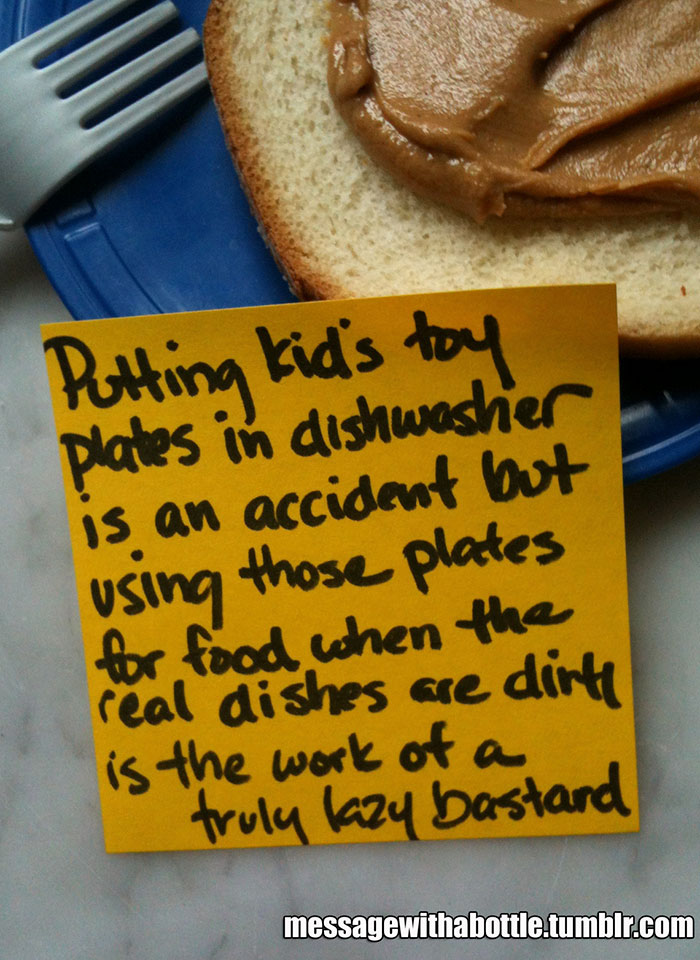 Putting kid's toy
plates in dishwasher
is an accident but
using those plates
for food when the
real dishes are dirty
is the work of a
truly lazy bastard
messagewithabottle.tumblr.com